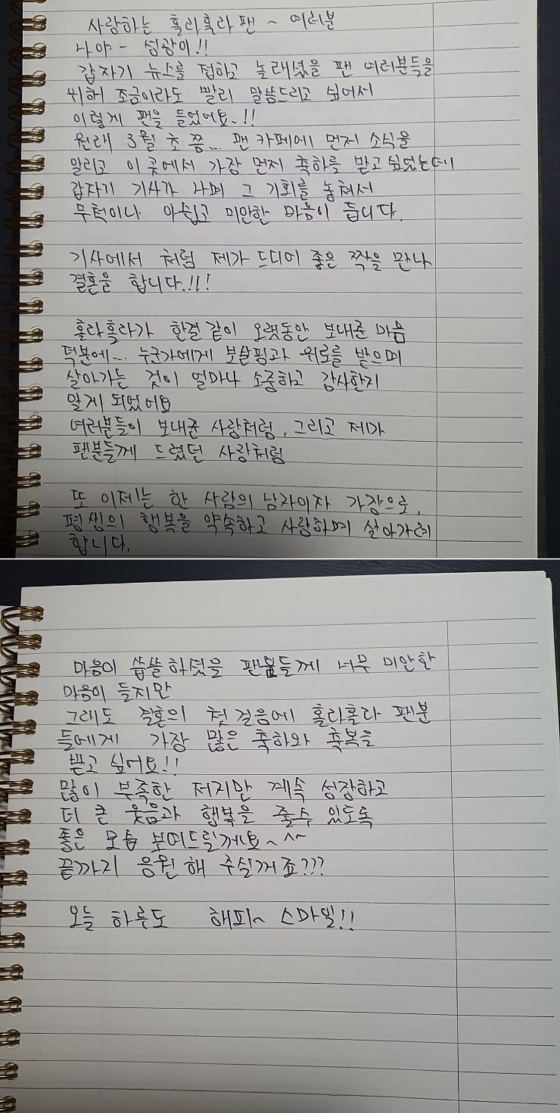 사랑하는 훌리훌라 팬 ~ 여러분
나야 - 성광이!!
갑자기 뉴스를 접하고 놀래셨을 팬 여러분들을
위해 조금이라도 빨리 말씀드리고 싶어서
이렇게 펜을 들었어요.!!
원래 3월 초 쯤... 팬 카페에 먼저 소식을
알리고 이 곳에서 가장 먼저 축하를 받고 싶었는데
갑자기 기사가 나와 그 기회를 놓쳐서
무척이나 아쉽고 미안한 마음이 듭니다.
기사에서 처럼 제가 드디어 좋은 짝을 만나
결혼을 합니다.!!!
훌리훌라가 한결 같이 오랫동안 보내준 마음
덕분에... 누군가에게 보살핌과 위로를 받으며
살아가는 것이 얼마나 소중하고 감사한지
알게 되었어요
여러분들이 보내준 사랑처럼, 그리고 제가
팬분들께 드렸던 사랑처럼
또 이제는 한 사람의 남자이자 가장으로,
평생의 행복을 약속하고 사랑하며 살아가려
합니다.
마음이 씁쓸하셨을 팬분들께 너무 미안한
마음이 들지만
그래도 결혼의 첫 걸음에 훌리훌라 팬분
들에게 가장 많은 축하와 축복을
받고 싶어요!!
많이 부족한 저지만 계속 성장하고
더 큰 웃음과 행복을 줄수 있도록
좋은 모습 보여드릴께요~ ^^
끝까지 응원 해 주실꺼죠???
오늘 하루도 해피~ 스마일!!